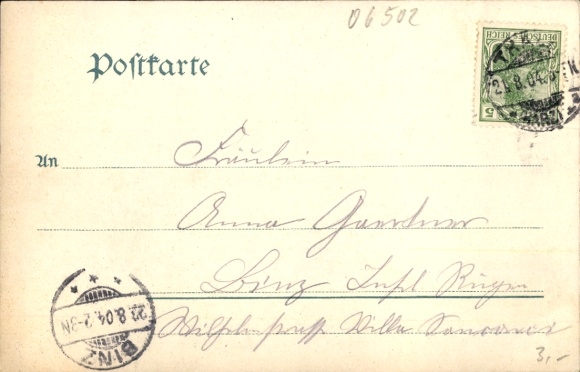 06502
Postkarte
DEUTSCHES REICH
5
HARZ
An Fräulein
Anna Gaertner
Binz Insel Rügen
Wilhelmstrasse Villa
BINZ
23.8.04.2-3N
3,-